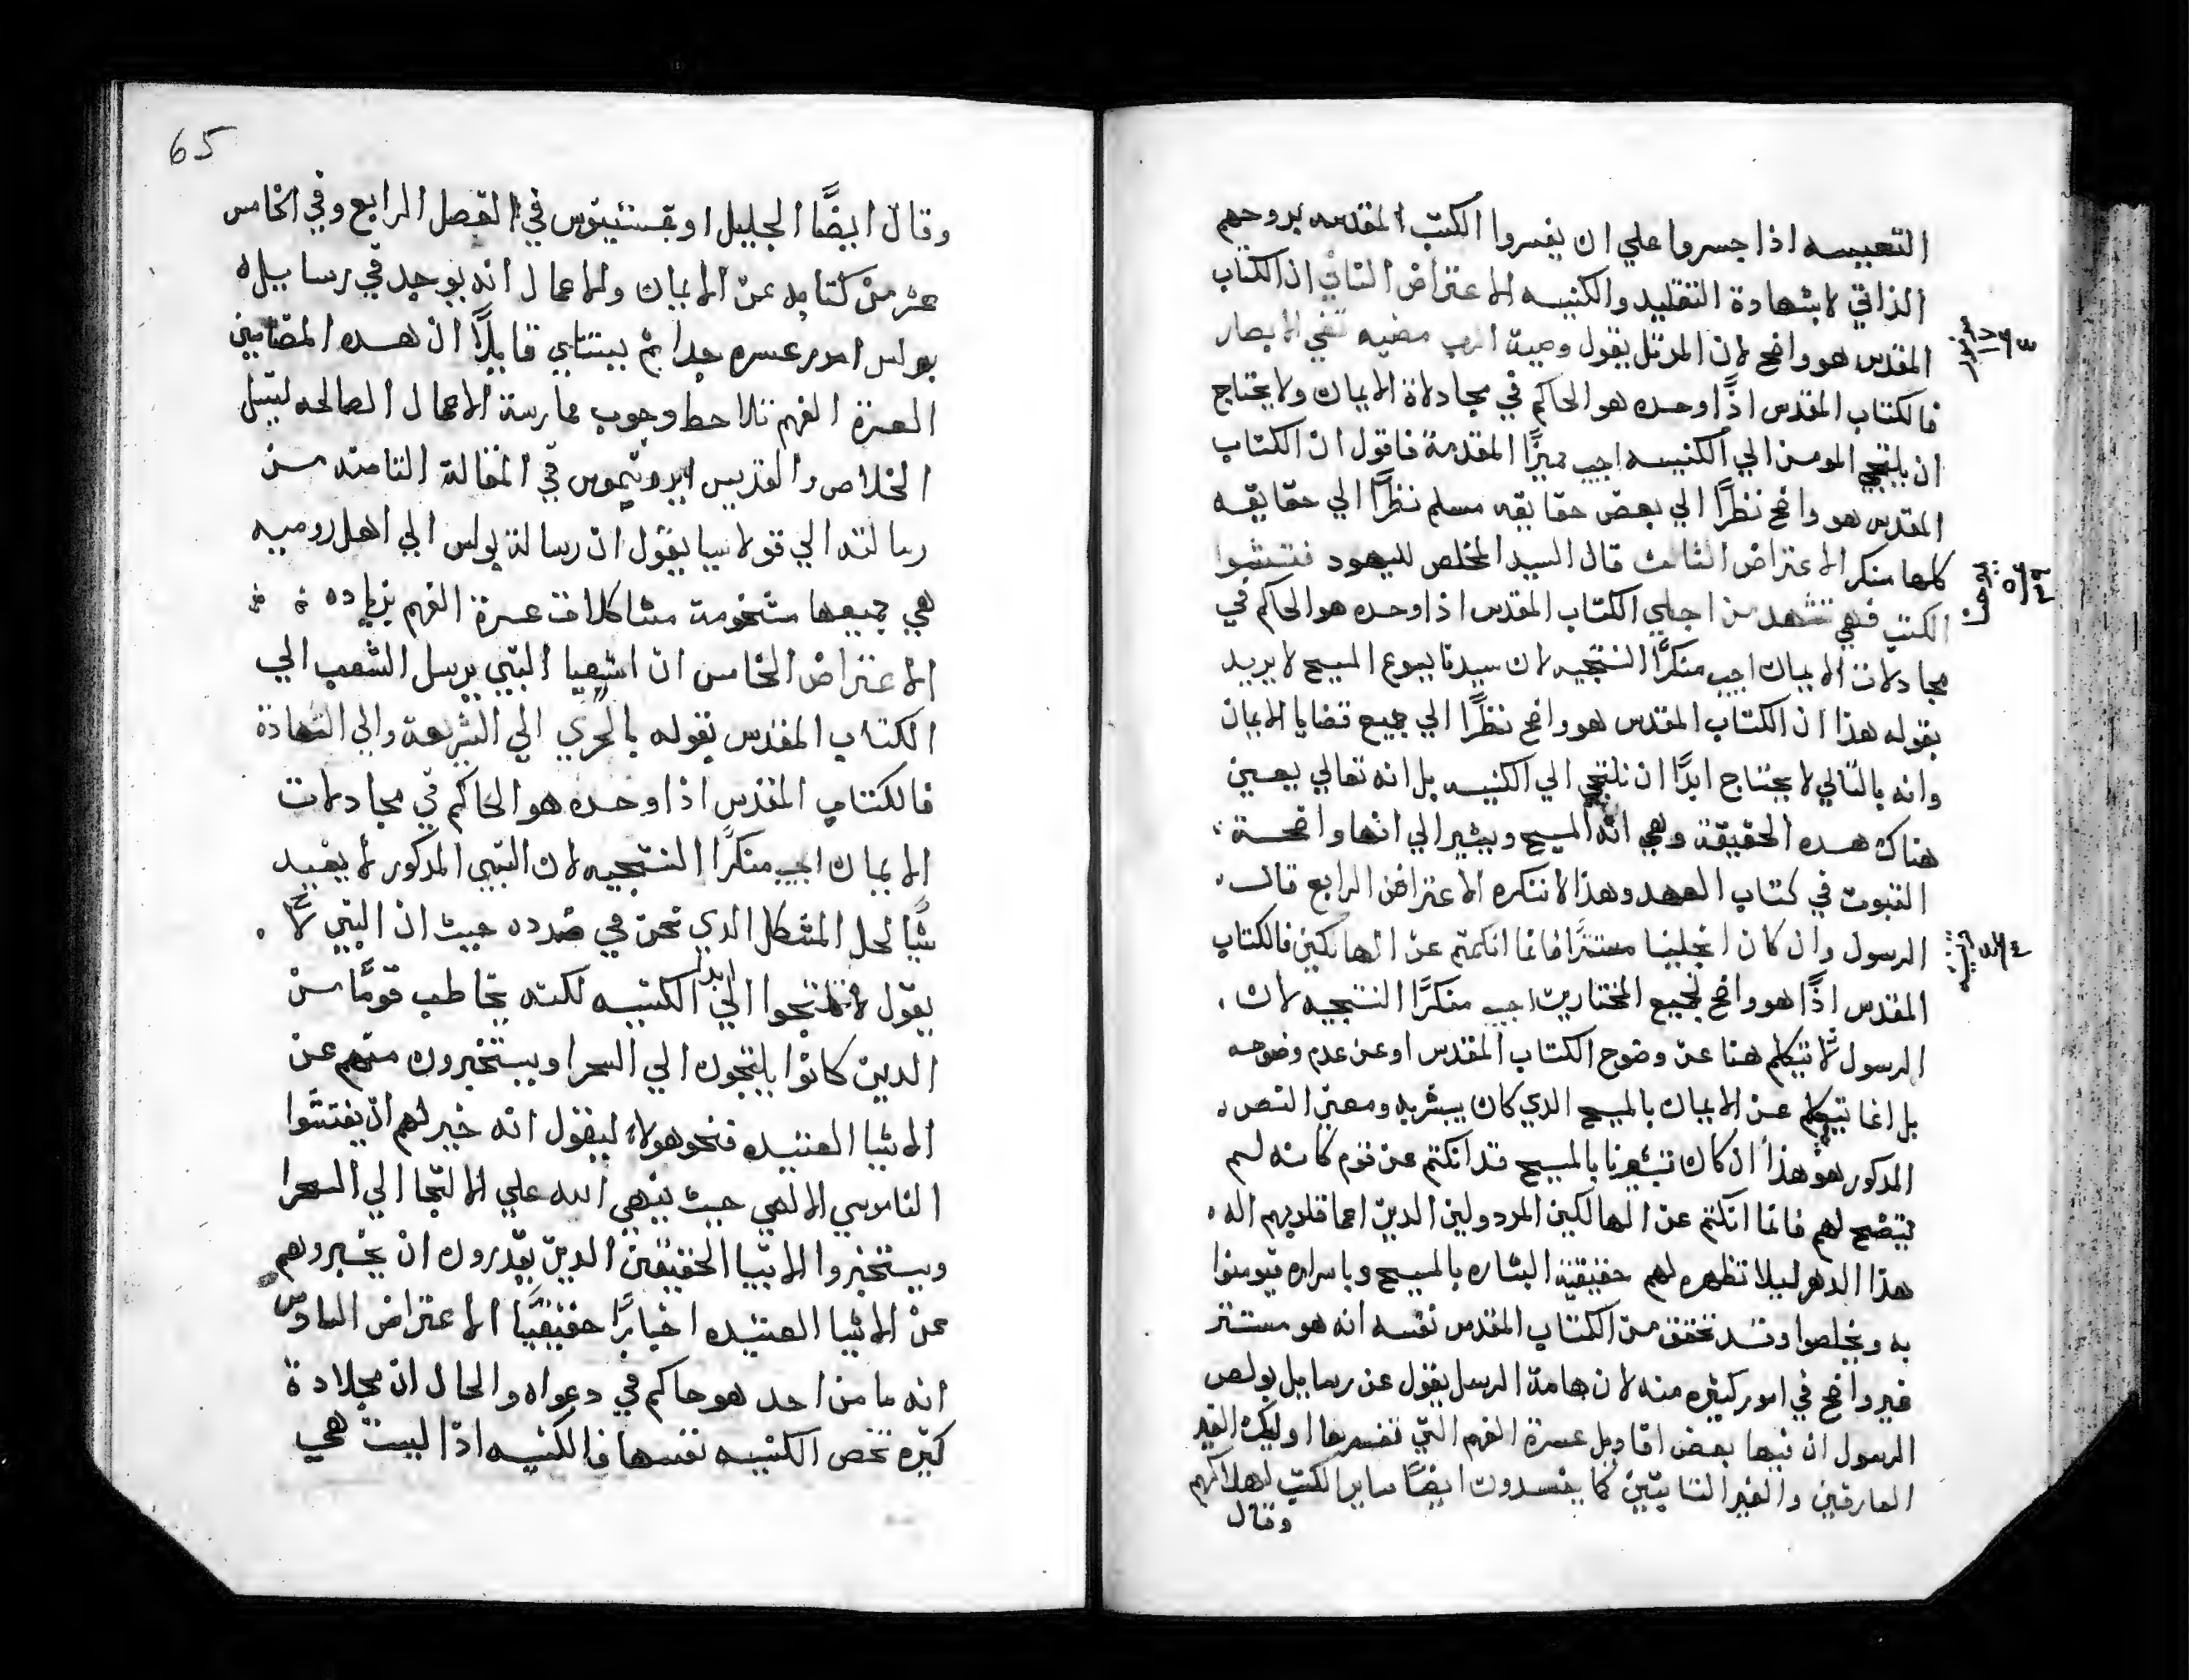 التعيسه اذا جسروا علي ان يفسروا الكتب المقدسه بروحهم
الذاتي لا بشهادة التقليد والكنيسه الاعتراض الثاني ان الكتاب
المقدس هو واضح لان المرتل يقول وصية الرب مضيه تضي الابصار
فالكتاب المقدس اذًا وحده هو الحاكم في مجادلاة الايمان ولا يحتاج
ان يلتجي المومن الي الكنيسه اجيب مميزًا المقدمة فاقول ان الكتاب
المقدس هو واضح نظرًا الي بعض حقايقه مسلم نظرًا الي حقايقه
كلها منكر الاعتراض الثالث قال السيد المخلص لليهود فتشوا
الكتب فهي تشهد من اجلي الكتاب المقدس اذا وحده هو الحاكم في
مجادلات الايمان اجيب منكرًا النتجيه لان سيدنا يسوع المسيح لا يريد
بقوله هذا ان الكتاب المقدس هو واضح نظرًا الي جميع قضايا الايمان
وانه بالتالي لا يحتاج ابدًا ان نلتجي الي الكنيسه بل انه تعالي يعين
هناك هده الحقيقة وهي انه المسيح ويشير الي انها واضحة
الثبوت في كتاب العهد وهذا لا ننكره الاعتراض الرابع قال
الرسول وان كان انجيلنا مستترًا فانما انكتم عن الهالكين فالكتاب
المقدس اذًا هو واضح لجميع المختارين اجيب منكرًا النتجيه لان
الرسول لا يتكلم هنا عن وضوح الكتاب المقدس او عن عدم وضوحه
بل انما يتكلم عن الايمان بالمسيح الدي كان يبشر به ومعني النص
المدكور هو هذا ان كان تبشيرنا بالمسيح قد انكتم عن قوم كانه لم
يتضح لهم فانما انكتم عن الهالكين المردولين الدين اعما قلوبهم اله
هذا الدهر ليلا تظهره لهم حقيقية البشاره بالمسيح وباسراره فيومنوا
به ويخلصوا وقد تحقق من الكتاب المقدس نفسه انه هو مستتر
غير واضح في امور كثيره منه لان هامة الرسل يقول عن رسايل بولص
الرسول ان فيها بعض اقاويل عسرة الفهم التي تفسرها اوليك الغير
العارفين والغير الثابتين كما يفسدون ايضًا ساير الكتب لهلاكهم
وقال
مزمور
يوحنا
65
وقال ايضًا الجليل اوغسنتينوس في الفصل الرابع وفي الخامس
عشر من كتابه عن الايمان والاعمال انه يوجد في رسايل
بولس امور عسره جدا ثم يبتتدي قايلًا ان هده المضامين
العسرة الفهم تلاحظ وجوب ممارسة الاعمال الصالحه لنيل
الخلاص والقديس ايرونيموس في المقالة الثامنه من
رسالته الي قولاسيا يقول ان رسالة بولس الي اهل روميه
هي جميعها مشخومة مشاكلات عسرة الفهم بزياده
الاعتراض الخامس ان اشعيا النبي يرسل الشعب الي
الكتاب المقدس بقوله بالحري الي الشريعة والي الشهادة
فالكتاب المقدس اذا وحده هو الحاكم في مجادلات
الايمان اجيب منكرًا النتجيه لان النبي المدكور لا يفيد
شيًا لحل المشكل الدي نحن في صدده حيث ان النبي لا
يقول لا تلتجوا ابدا الي الكنيسه لكنه يخاطب قومًا من
الدين كانوا يلتجون الي السحرا ويستخبرون منهم عن
الاشيا العتيده فنحو هولاء ليقول انه خير لهم ان يفتشوا
الناموس الالهي حيث ينهي الله علي الالتجا الي السحرا
ويستخبروا الانبيا الحقيقين الدين يقدرون ان يخبروهم
عن الاشيا العتيده اخبارًا حقيقيًا الاعتراض السادس
انه ما من احد هو حاكم في دعواه والحال ان مجلادة
كثيره تخص الكنيسه نفسها فالكنيسه اذا ليست هي